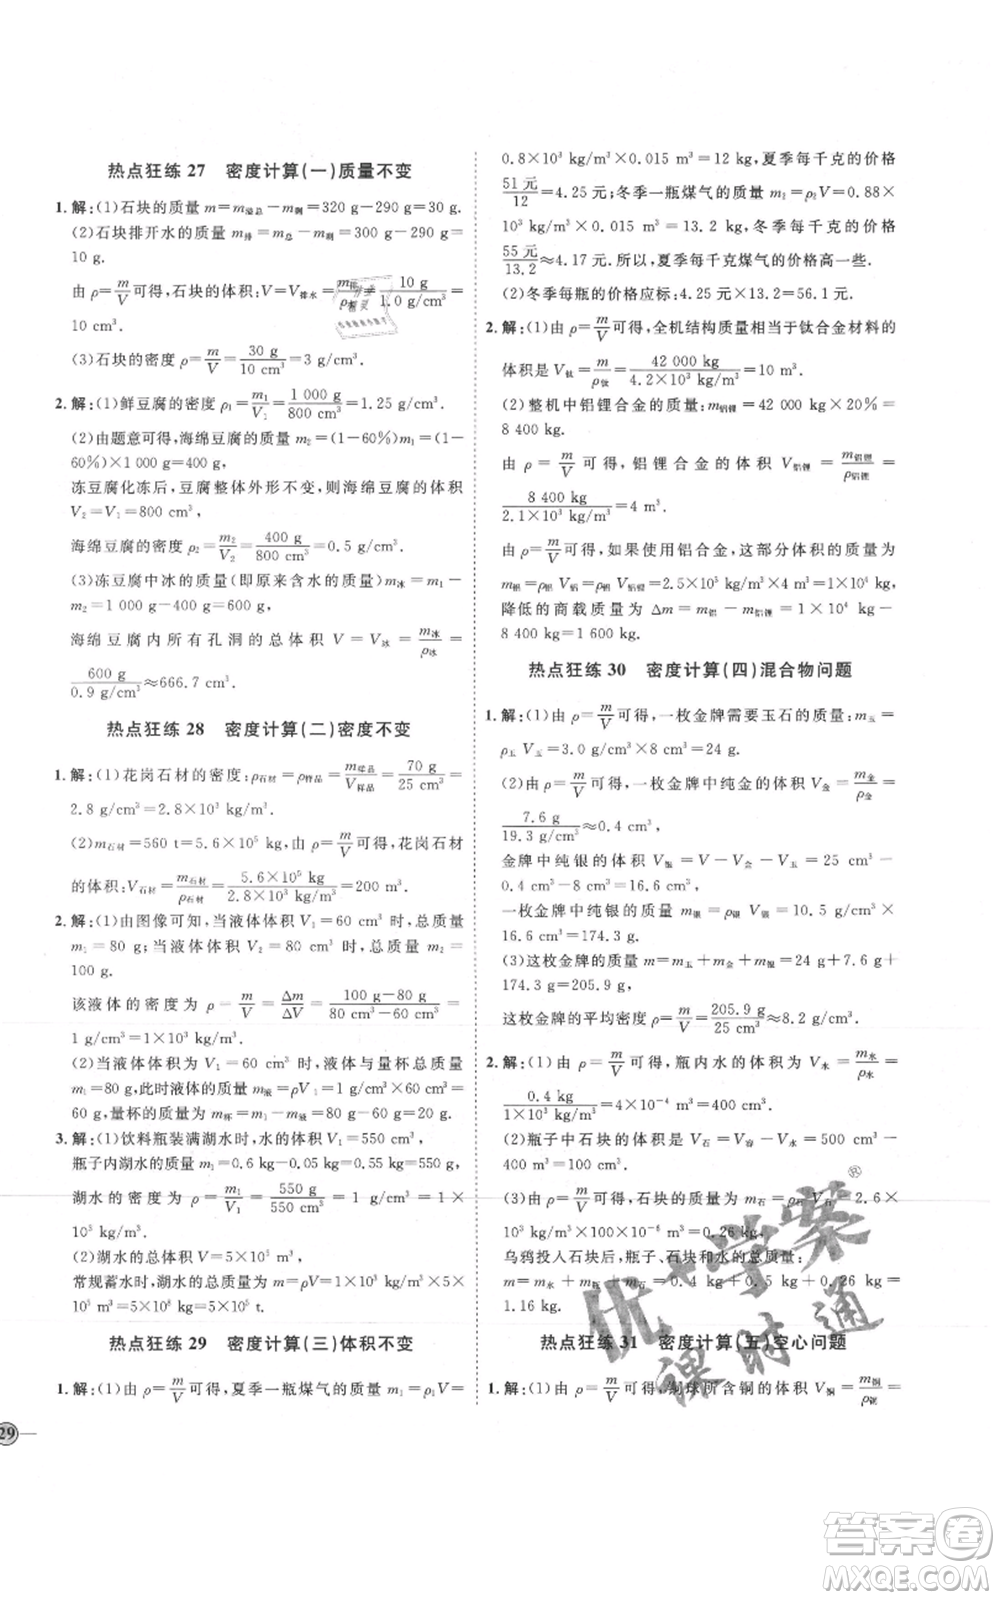 热点狂练 27 密度计算(一)质量不变
1. 解:(1)石块的质量 m=m溢总-m剩=320 g-290 g=30 g.
(2)石块排开水的质量 m排水=m总-m剩=300 g-290 g=
10 g.
由 ρ=m/V 可得,石块的体积:V=V排水=m排水/ρ水=10 g/1.0 g/cm³=
(3)石块的密度 ρ=m/V=30 g/10 cm³=3 g/cm³.
2. 解:(1)鲜豆腐的密度 ρ₁=m₁/V₁=1 000 g/800 cm³=1.25 g/cm³.
(2)由题意可得,海绵豆腐的质量 m₂=(1-60%)m₁=(1-
60%)×1 000 g=400 g,
冻豆腐化冻后,豆腐整体外形不变,则海绵豆腐的体积
V₂=V₁=800 cm³,
海绵豆腐的密度 ρ₂=m₂/V₂=400 g/800 cm³=0.5 g/cm³.
(3)冻豆腐中冰的质量(即原来含水的质量)m冰=m₁-
m₂=1 000 g-400 g=600 g,
海绵豆腐内所有孔洞的总体积 V=V冰=m冰/ρ冰=
600 g/0.9 g/cm³≈666.7 cm³.
热点狂练 28 密度计算(二)密度不变
1. 解:(1)花岗石材的密度:ρ石材=ρ样品=m样品/V样品=70 g/25 cm³=
2.8 g/cm³=2.8×10³ kg/m³.
(2)m石材=560 t=5.6×10⁵ kg,由 ρ=m/V 可得,花岗石材
的体积:V石材=m石材/ρ石材=5.6×10⁵ kg/2.8×10³ kg/m³=200 m³.
2. 解:(1)由图像可知,当液体体积 V₁=60 cm³ 时,总质量
m₁=80 g;当液体体积 V₂=80 cm³ 时,总质量 m₂=
100 g.
该液体的密度为 ρ=m/V=Δm/ΔV=100 g-80 g/80 cm³-60 cm³=
1 g/cm³=1×10³ kg/m³.
(2)当液体体积为 V₁=60 cm³ 时,液体与量杯总质量为
m₁=80 g,此时液体的质量 m液=ρV₁=1 g/cm³×60 cm³=
60 g,量杯的质量为 m杯=m₁-m液=80 g-60 g=20 g.
3. 解:(1)饮料瓶装满湖水时,水的体积 V₁=550 cm³,
瓶子内湖水的质量 m₁=0.6 kg-0.05 kg=0.55 kg=550 g,
湖水的密度为 ρ=m₁/V₁=550 g/550 cm³=1 g/cm³=1×
10³ kg/m³.
(2)湖水的总体积 V=5×10⁷ m³,
常规蓄水时,湖水的总质量为 m=ρV=1×10³ kg/m³×5×
10⁷ m³=5×10¹⁰ kg=5×10⁷ t.
热点狂练 29 密度计算(三)体积不变
1. 解:(1)由 ρ=m/V 可得,夏季一瓶煤气的质量 m₁=ρ₁V=
0.8×10³ kg/m³×0.015 m³=12 kg,夏季每千克的价格
51 元/12=4.25 元;冬季一瓶煤气的质量 m₂=ρ₂V=0.88×
10³ kg/m³×0.015 m³=13.2 kg,冬季每千克的价格
55 元/13.2≈4.17 元.所以,夏季每千克煤气的价格高一些.
(2)冬季每瓶的价格应标:4.25×13.2=56.1 元.
2. 解:(1)由 ρ=m/V 可得,全机结构质量相当于钛合金材料的
体积是 V钛=m/ρ钛=42 000 kg/4.2×10³ kg/m³=10 m³.
(2)整机中铝锂合金的质量:m铝锂=42 000 kg×20%=
8 400 kg.
由 ρ=m/V 可得,铝锂合金的体积 V铝锂=m铝锂/ρ铝锂=
8 400 kg/2.1×10³ kg/m³=4 m³,
由 ρ=m/V 可得,如果使用铝合金,这部分体积的质量为
m铝=ρ铝V铝=ρ铝V铝锂=2.5×10³ kg/m³×4 m³=1×10⁴ kg,
降低的商载质量为 Δm=m铝-m铝锂=1×10⁴ kg-
8 400 kg=1 600 kg.
热点狂练 30 密度计算(四)混合物问题
1. 解:(1)由 ρ=m/V 可得,一枚金牌需要玉石的质量:m玉=
ρ玉V玉=3.0 g/cm³×8 cm³=24 g.
(2)由 ρ=m/V 可得,一枚金牌中纯金的体积 V金=m金/ρ金=
7.6 g/19.3 g/cm³≈0.4 cm³,
金牌中纯银的体积 V银=V-V金-V玉=25 cm³-
0.4 cm³-8 cm³=16.6 cm³,
一枚金牌中纯银的质量 m银=ρ银V银=10.5 g/cm³×
16.6 cm³=174.3 g.
(3)这枚金牌的质量 m=m玉+m金+m银=24 g+7.6 g+
174.3 g=205.9 g,
这枚金牌的平均密度 ρ=m/V=205.9 g/25 cm³≈8.2 g/cm³.
2. 解:(1)由 ρ=m/V 可得,瓶内水的体积为 V水=m水/ρ水=
0.4 kg/1×10³ kg/m³=4×10⁻⁴ m³=400 cm³.
(2)瓶子中石块的体积为 V石=V容-V水=500 cm³-
400 cm³=100 cm³.
(3)由 ρ=m/V 可得,石块的质量为 m石=ρ石V石=2.6×
10³ kg/m³×100×10⁻⁶ m³=0.26 kg,
乌鸦投入石块后,瓶子、石块和水的总质量:
m=m水+m石+m瓶=0.4 kg+0.26 kg+0.5 kg=
1.16 kg.
热点狂练 31 密度计算(五)空心问题
1. 解:(1)由 ρ=m/V 可得,铜球所含铜的体积 V铜=
29
优+学案
课时通
答案圈
MXQE.COM